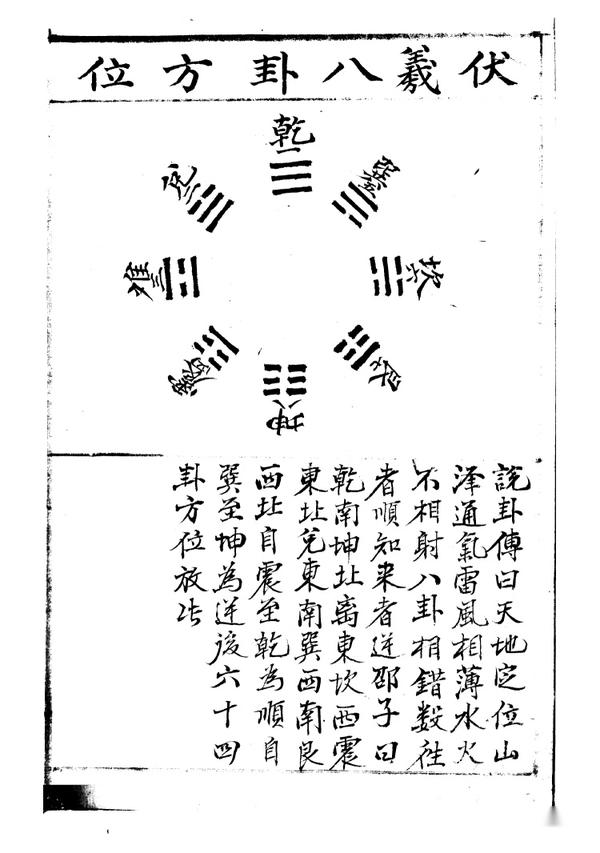 伏羲八卦方位
乾一
兌二
離三
震四
巽五
坎六
艮七
坤八
說卦傳曰天地定位山
泽通氣雷風相薄水火
不相射八卦相錯数往
者順知来者逆邵子曰
乾南坤北离東坎西震
東北兌東南巽西南艮
西北自震至乾為順自
巽至坤為逆後六十四
卦方位放此